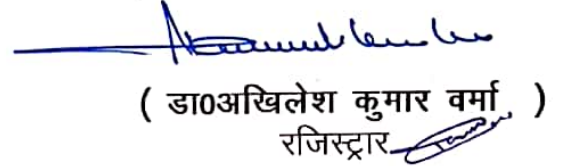 ( डा0अखिलेश कुमार वर्मा )
रजिस्ट्रार